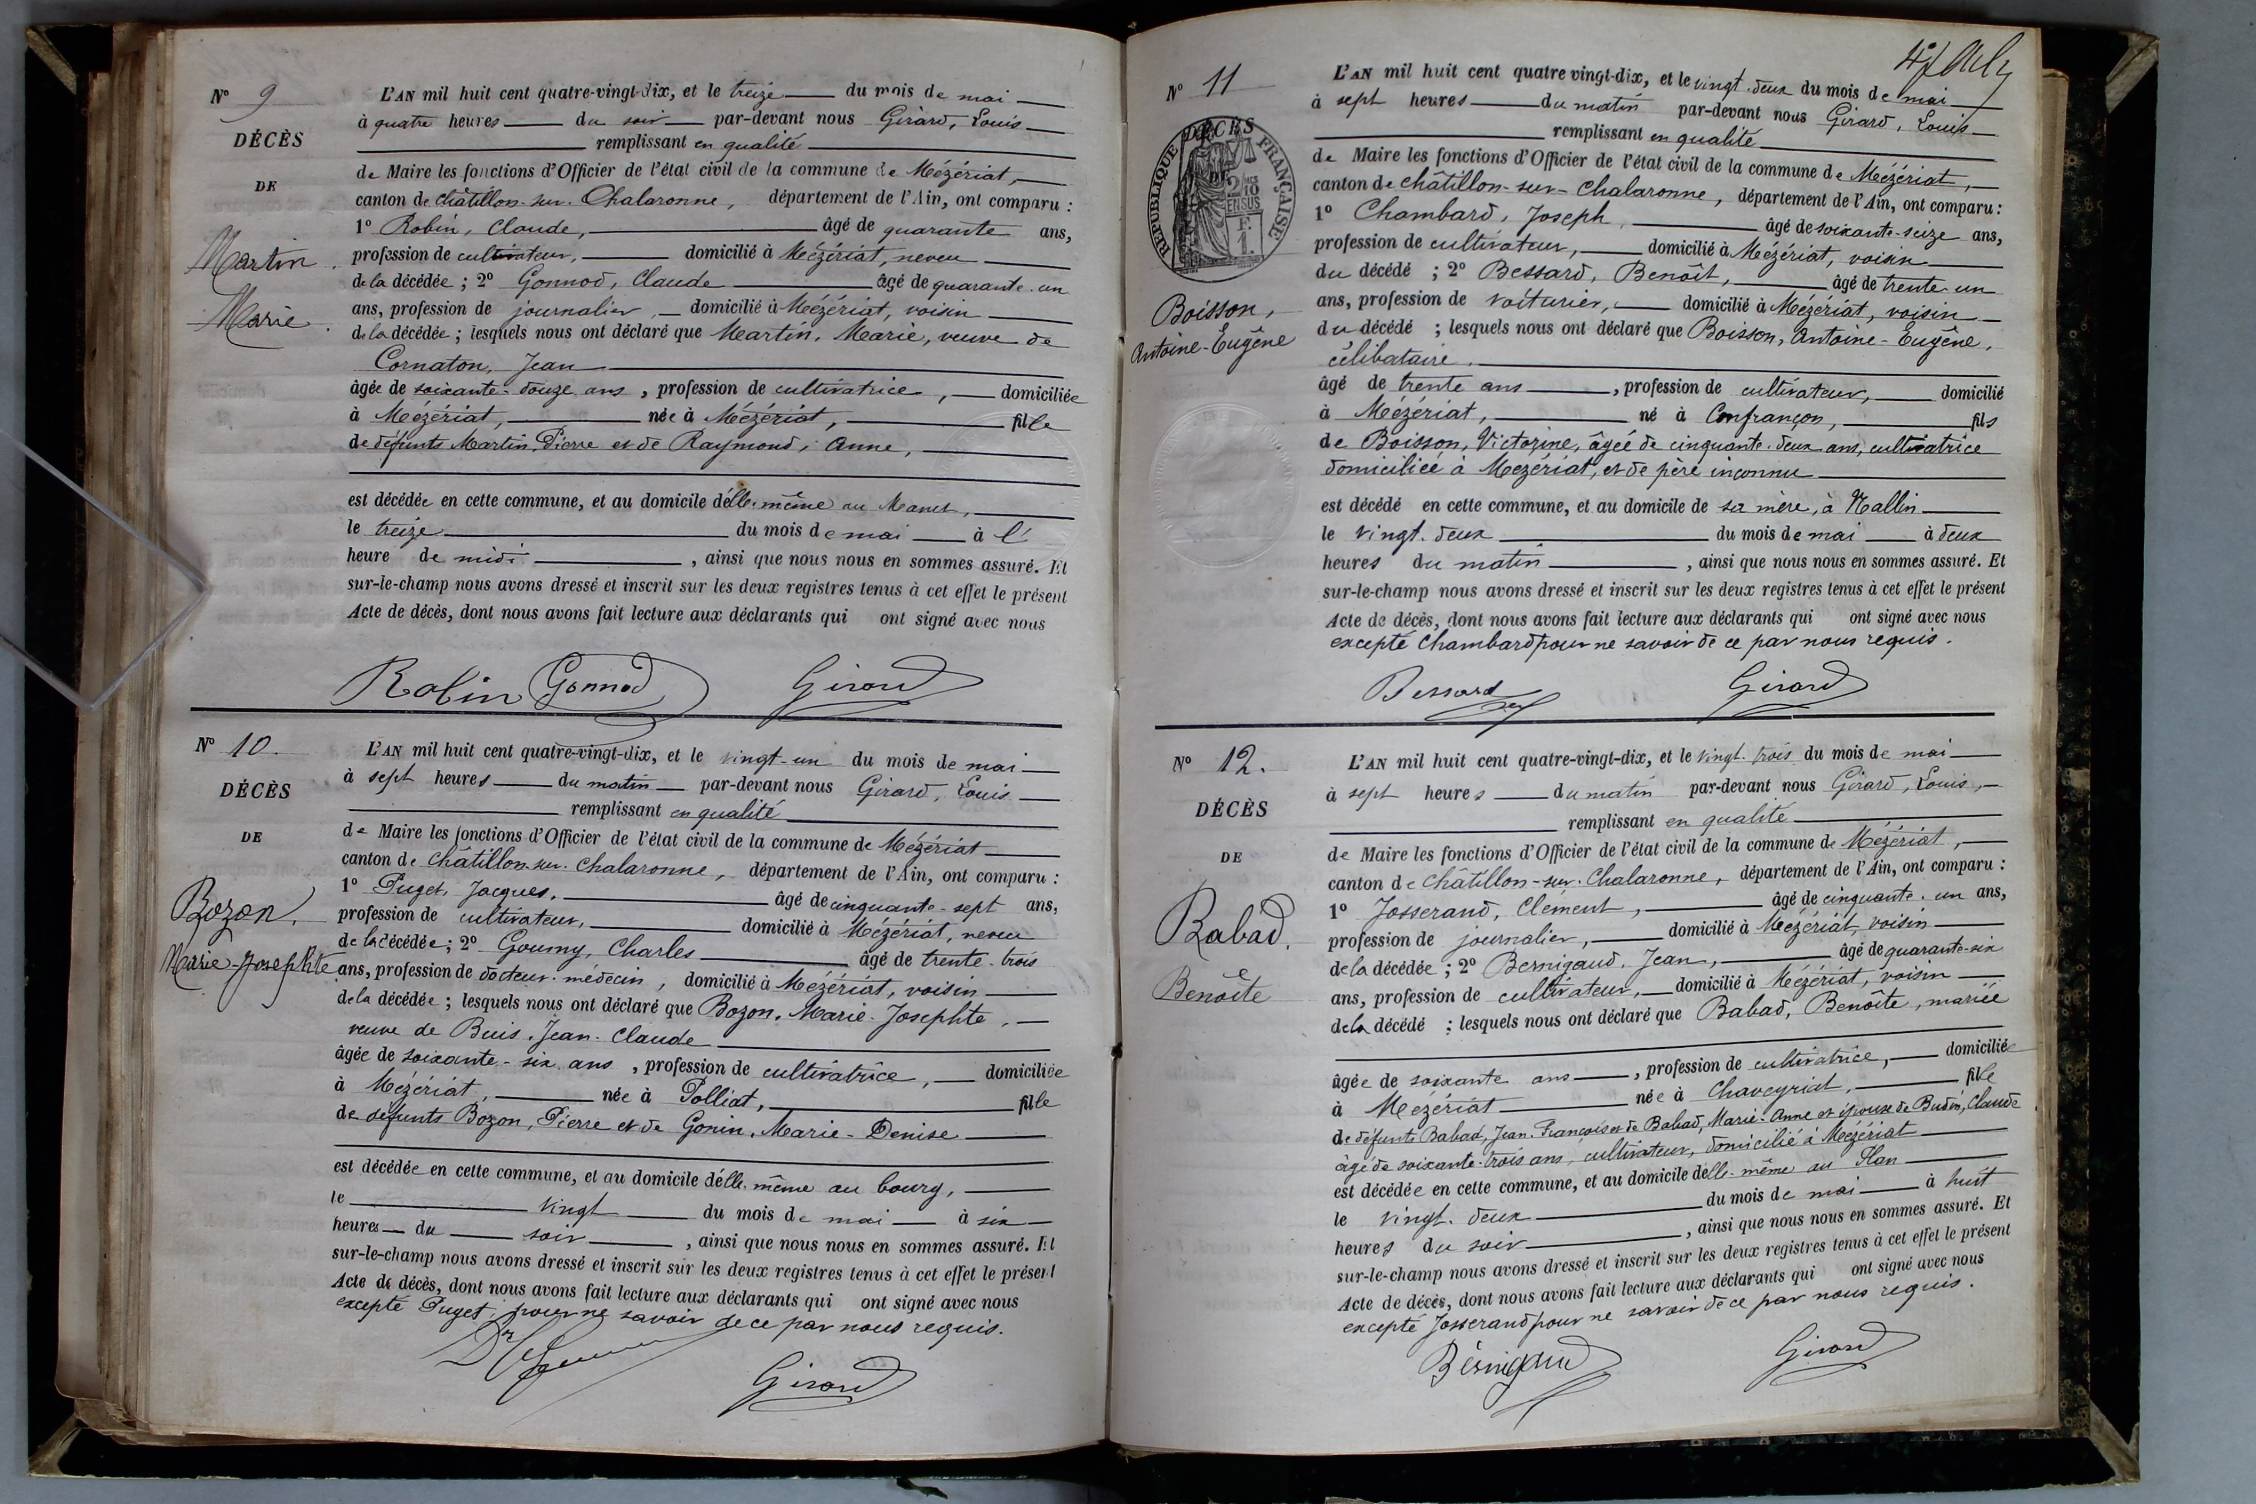 N° 9
DÉCÈS
DE
Martin
Marie
L'AN mil huit cent quatre-vingt-dix, et le treize du mois de mai
à quatre heures du soir par-devant nous Girard, Louis
remplissant en qualité
de Maire les fonctions d'Officier de l'état civil de la commune de Mézériat,
canton de Châtillon-sur-Chalaronne, département de l'Ain, ont comparu :
1° Robin, Claude, âgé de quarante ans,
profession de cultivateur, domicilié à Mézériat, neveu
de la décédée ; 2° Gonnod, Claude âgé de quarante-un
ans, profession de journalier, domicilié à Mézériat, voisin
de la décédée ; lesquels nous ont déclaré que Martin, Marie, veuve de
Cornaton, Jean
âgée de soixante-douze ans, profession de cultivatrice, domiciliée
à Mézériat, née à Mézériat, fille
de défunts Martin, Pierre et de Raymond, Anne,
est décédée en cette commune, et au domicile d'elle-même au
le treize du mois de mai à l'
heure de midi, ainsi que nous nous en sommes assuré. Et
sur-le-champ nous avons dressé et inscrit sur les deux registres tenus à cet effet le présent
Acte de décès, dont nous avons fait lecture aux déclarants qui ont signé avec nous
Robin Gonnod Girard
N° 10.
DÉCÈS
DE
Bozon,
Marie-Josephte
L'AN mil huit cent quatre-vingt-dix, et le vingt-un du mois de mai
à sept heures du matin par-devant nous Girard, Louis
remplissant en qualité
de Maire les fonctions d'Officier de l'état civil de la commune de Mézériat
canton de Châtillon-sur-Chalaronne, département de l'Ain, ont comparu :
1° Puget, Jacques, âgé de cinquante-sept ans,
profession de cultivateur, domicilié à Mézériat, neveu
de la décédée ; 2° Goumy, Charles âgé de trente-trois
ans, profession de docteur-médecin, domicilié à Mézériat, voisin
de la décédée ; lesquels nous ont déclaré que Bozon, Marie-Josephte,
veuve de Buis, Jean-Claude
âgée de soixante-six ans, profession de cultivatrice, domiciliée
à Mézériat, née à Polliat, fille
de défunts Bozon, Pierre et de Gonin, Marie-Denise
est décédée en cette commune, et au domicile d'elle-même au bourg,
le vingt du mois de mai à six
heures du soir, ainsi que nous nous en sommes assuré. Et
sur-le-champ nous avons dressé et inscrit sur les deux registres tenus à cet effet le présent
Acte de décès, dont nous avons fait lecture aux déclarants qui ont signé avec nous
excepté Puget, pour ne savoir de ce par nous requis.
Girard
N° 11
RÉPUBLIQUE FRANÇAISE
2/10
EN SUS
F.
1.
DÉCÈS
DE
Boisson,
Antoine-Eugène
L'AN mil huit cent quatre vingt-dix, et le vingt-deux du mois de mai
à sept heures du matin par-devant nous Girard, Louis
remplissant en qualité
de Maire les fonctions d'Officier de l'état civil de la commune de Mézériat,
canton de Châtillon-sur-Chalaronne, département de l'Ain, ont comparu :
1° Chambard, Joseph, âgé de soixante-seize ans,
profession de cultivateur, domicilié à Mézériat, voisin
du décédé ; 2° Bessard, Benoît, âgé de trente-un
ans, profession de voiturier, domicilié à Mézériat, voisin
du décédé ; lesquels nous ont déclaré que Boisson, Antoine-Eugène,
célibataire.
âgé de trente ans, profession de cultivateur, domicilié
à Mézériat, né à Confrançon, fils
de Boisson, Victorine, âgée de cinquante-deux ans, cultivatrice
domiciliée à Mézériat, et de père inconnu
est décédé en cette commune, et au domicile de sa mère, à
le vingt-deux du mois de mai à deux
heures du matin, ainsi que nous nous en sommes assuré. Et
sur-le-champ nous avons dressé et inscrit sur les deux registres tenus à cet effet le présent
Acte de décès, dont nous avons fait lecture aux déclarants qui ont signé avec nous
excepté Chambard pour ne savoir de ce par nous requis.
Bessard Girard
N° 12.
DÉCÈS
DE
Babad,
Benoîte
L'AN mil huit cent quatre-vingt-dix, et le vingt-trois du mois de mai
à sept heures du matin par-devant nous Girard, Louis,
remplissant en qualité
de Maire les fonctions d'Officier de l'état civil de la commune de Mézériat,
canton de Châtillon-sur-Chalaronne, département de l'Ain, ont comparu :
1° Josserand, Clément, âgé de cinquante-un ans,
profession de journalier, domicilié à Mézériat, voisin
de la décédée ; 2° Bernigaud, Jean, âgé de quarante-six
ans, profession de cultivateur, domicilié à Mézériat, voisin
de la décédé ; lesquels nous ont déclaré que Babad, Benoîte, mariée
âgée de soixante ans, profession de cultivatrice, domiciliée
à Mézériat née à Chaveyriat, fille
de défunts Babad, Jean-François et de Babad, Marie-Anne et épouse de Budin, Claude
âgé de soixante-trois ans, cultivateur, domicilié à Mézériat
est décédée en cette commune, et au domicile d'elle-même au Plan
le vingt-deux du mois de mai à huit
heures du soir, ainsi que nous nous en sommes assuré. Et
sur-le-champ nous avons dressé et inscrit sur les deux registres tenus à cet effet le présent
Acte de décès, dont nous avons fait lecture aux déclarants qui ont signé avec nous
excepté Josserand pour ne savoir de ce par nous requis.
Bernigaud Girard